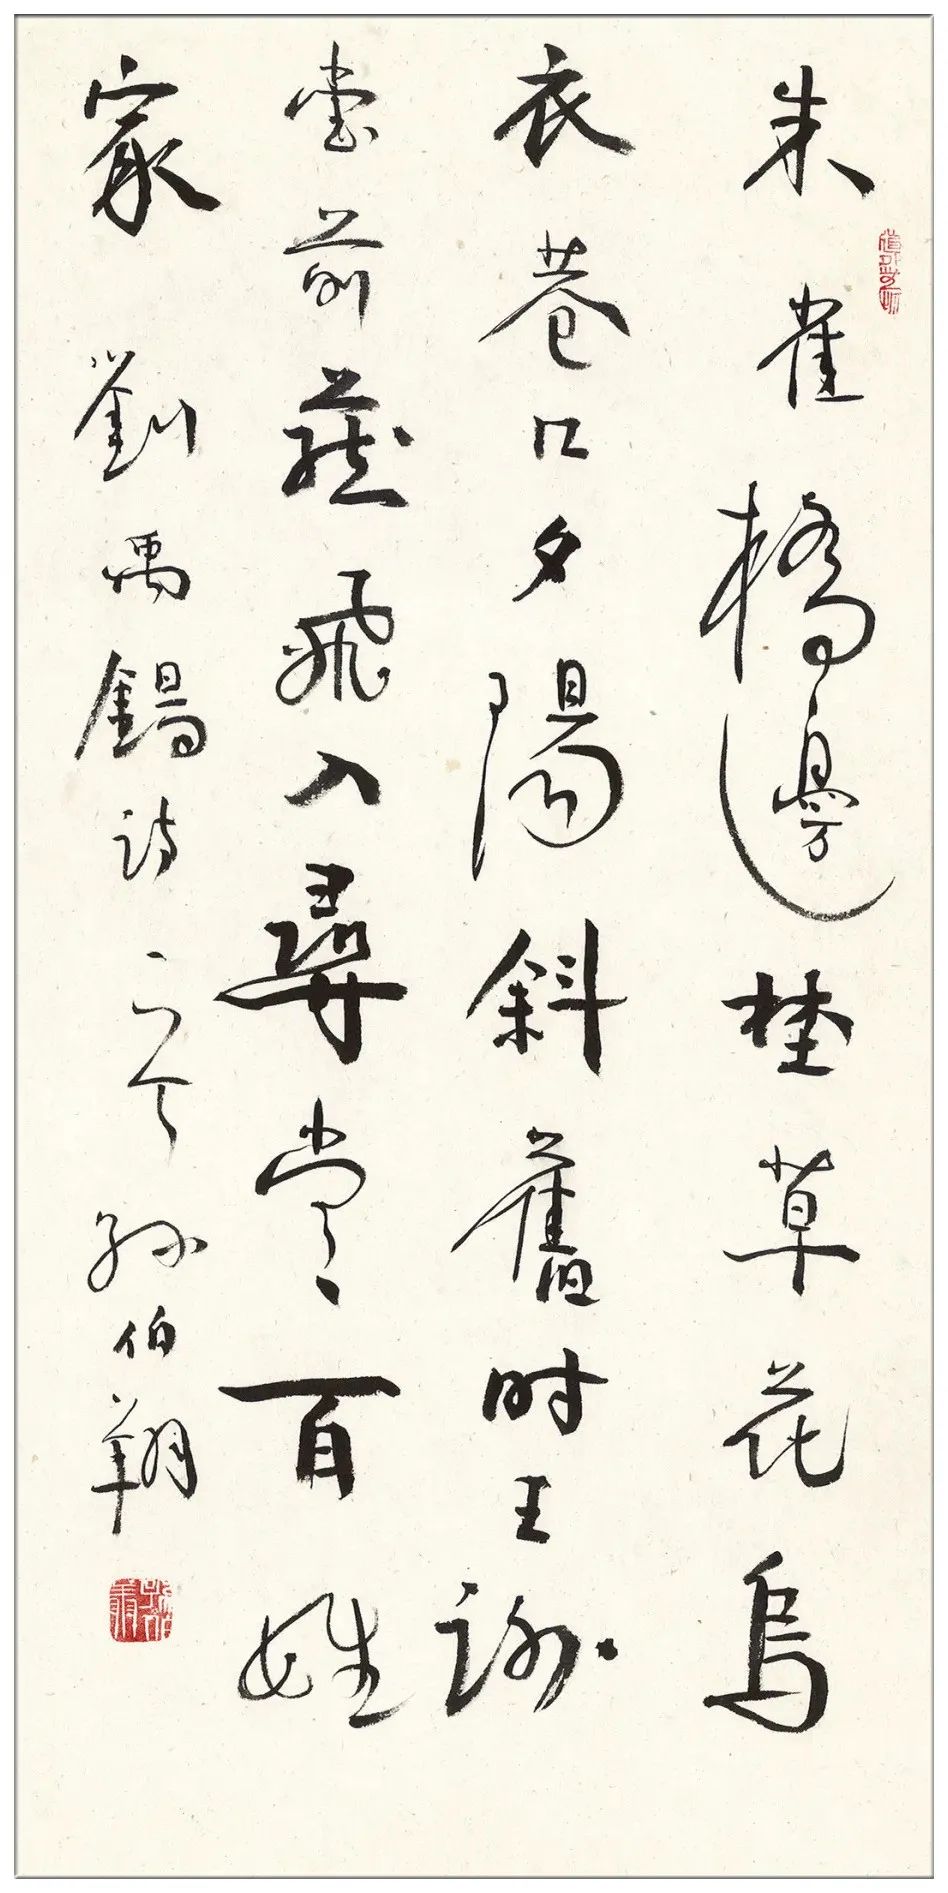 朱雀橋邊埜草花烏
衣巷口夕陽斜舊时王謝
堂前燕飛入尋常百姓
家 劉禹錫詩 孫伯翔